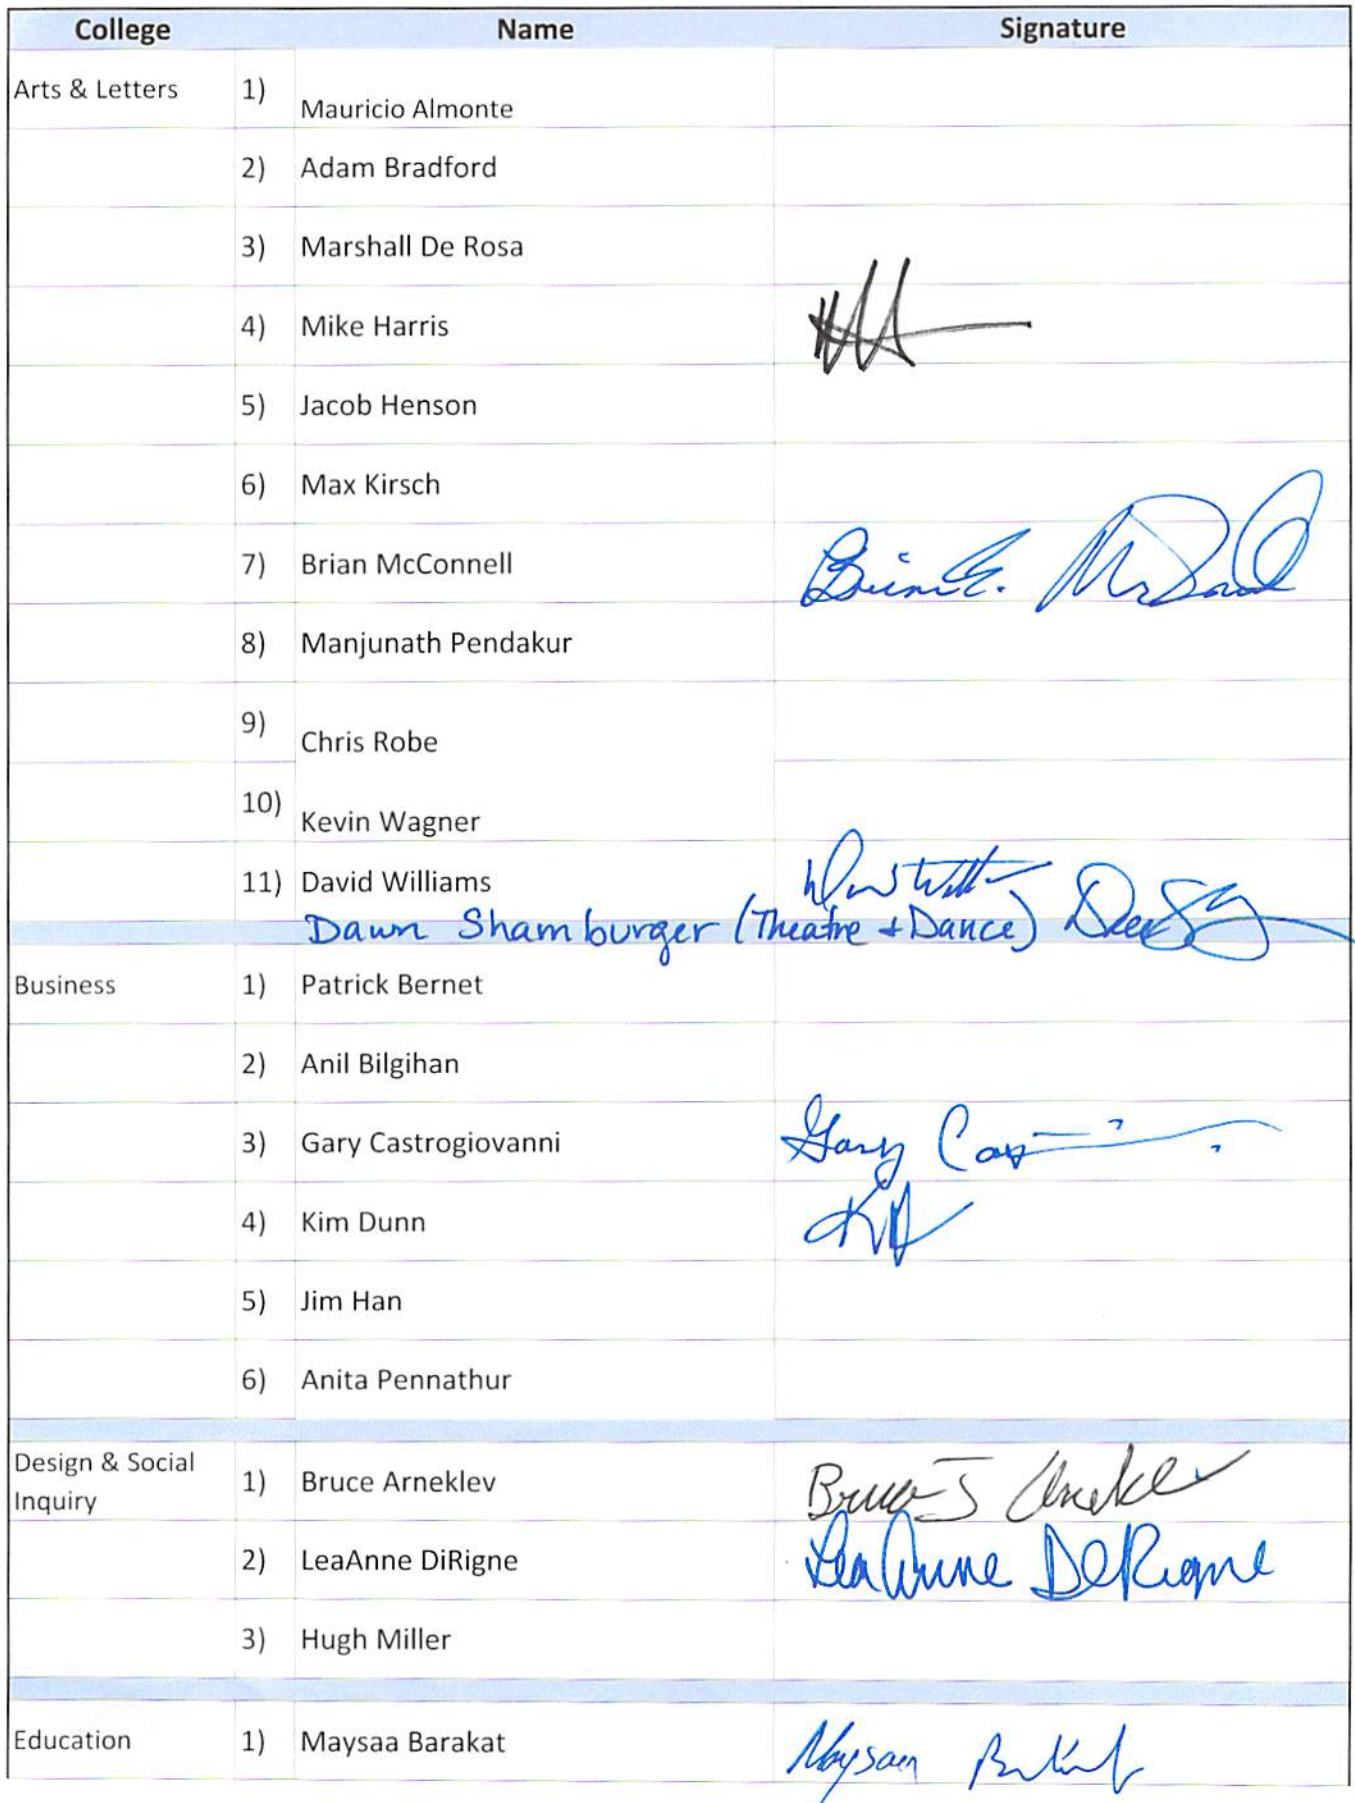 College Name Signature
Arts & Letters 1) Mauricio Almonte
2) Adam Bradford
3) Marshall De Rosa
4) Mike Harris
5) Jacob Henson
6) Max Kirsch
7) Brian McConnell
8) Manjunath Pendakur
9) Chris Robe
10) Kevin Wagner
11) David Williams
Dawn Shamburger (Theatre + Dance)
Business 1) Patrick Bernet
2) Anil Bilgihan
3) Gary Castrogiovanni Gary
4) Kim Dunn
5) Jim Han
6) Anita Pennathur
Design & Social
Inquiry 1) Bruce Arneklev Bruce J
2) LeaAnne DiRigne LeaAnne DeRigne
3) Hugh Miller
Education 1) Maysaa Barakat Maysaa